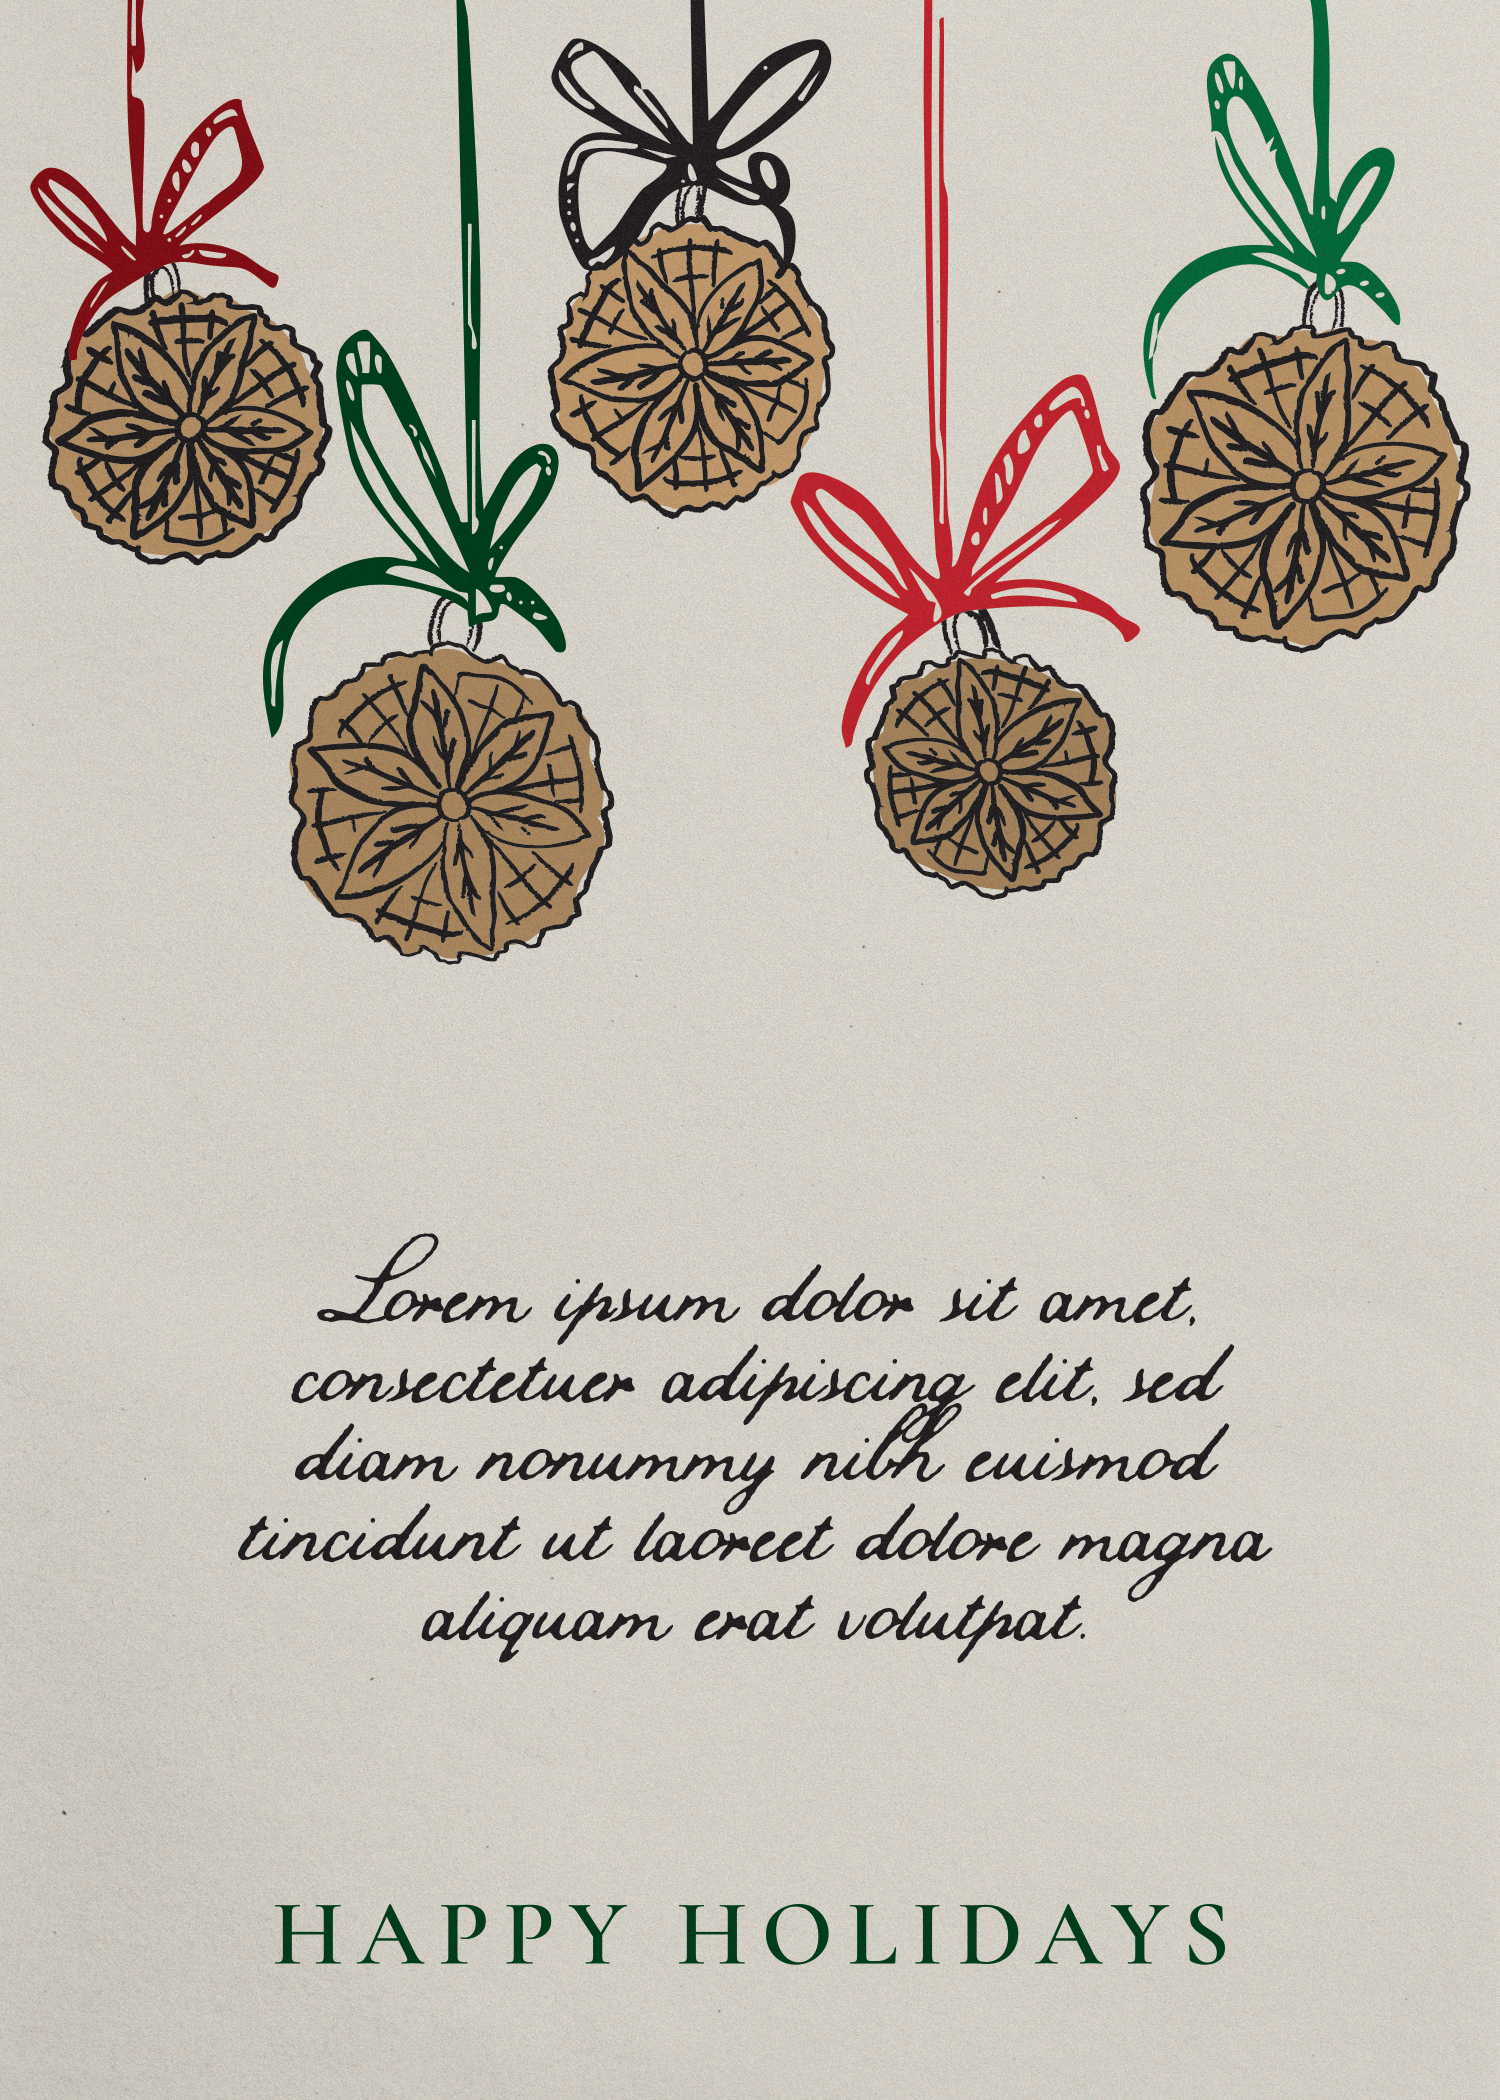 Lorem ipsum dolor sit amet,
consectetuer adipiscing elit, sed
diam nonummy nibh euismod
tincidunt ut laoreet dolore magna
aliquam erat volutpat.
HAPPY HOLIDAYS